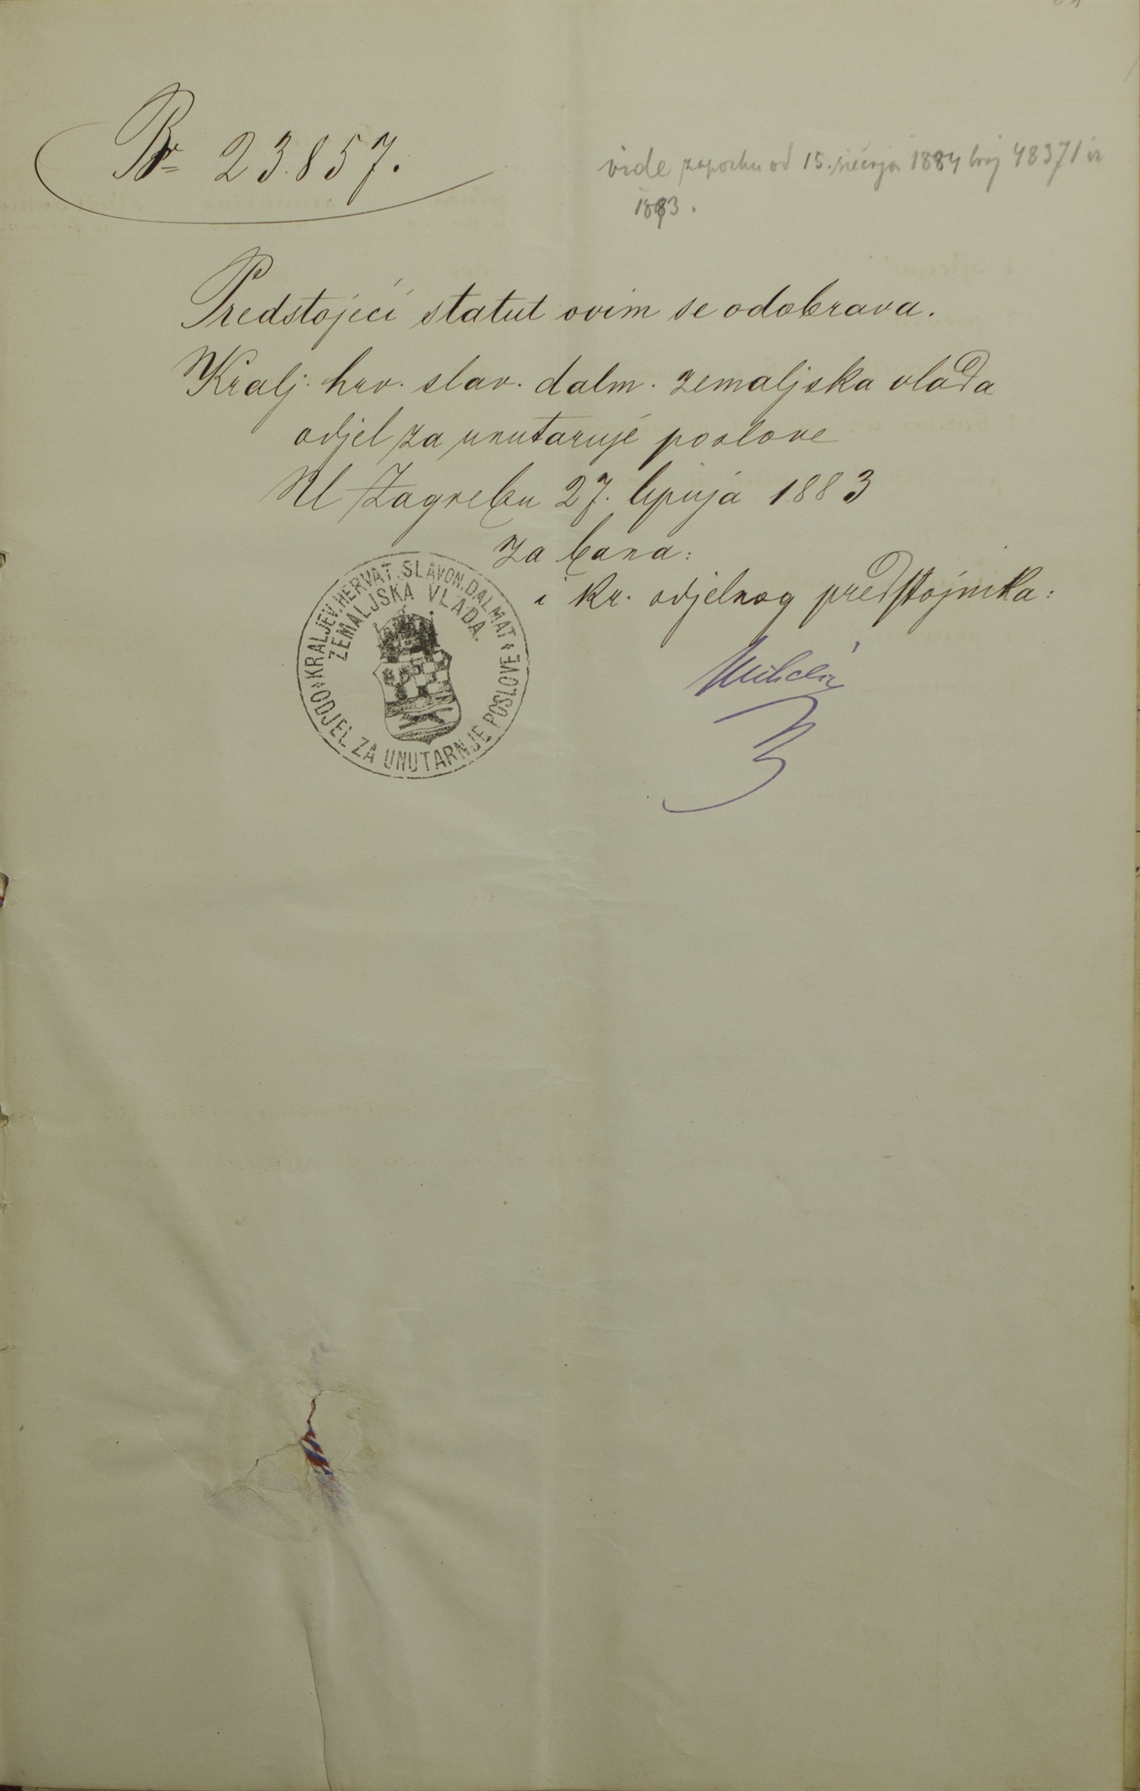 Br 23.857.
vide od 15. siečnja 1884 broj 48371 iz
1883.
Predstojeći statut ovim se odobrava.
Kralj. hrv. slav. dalm. zemaljska vlada
odjel za unutarnje poslove
U Zagrebu 27. lipnja 1883
Za bana:
i kr. odjelnog predstojnika:
KRALJEV. HERVAT. SLAVON. DALMAT
ZEMALJSKA VLADA.
ODJEL ZA UNUTARNJE POSLOVE